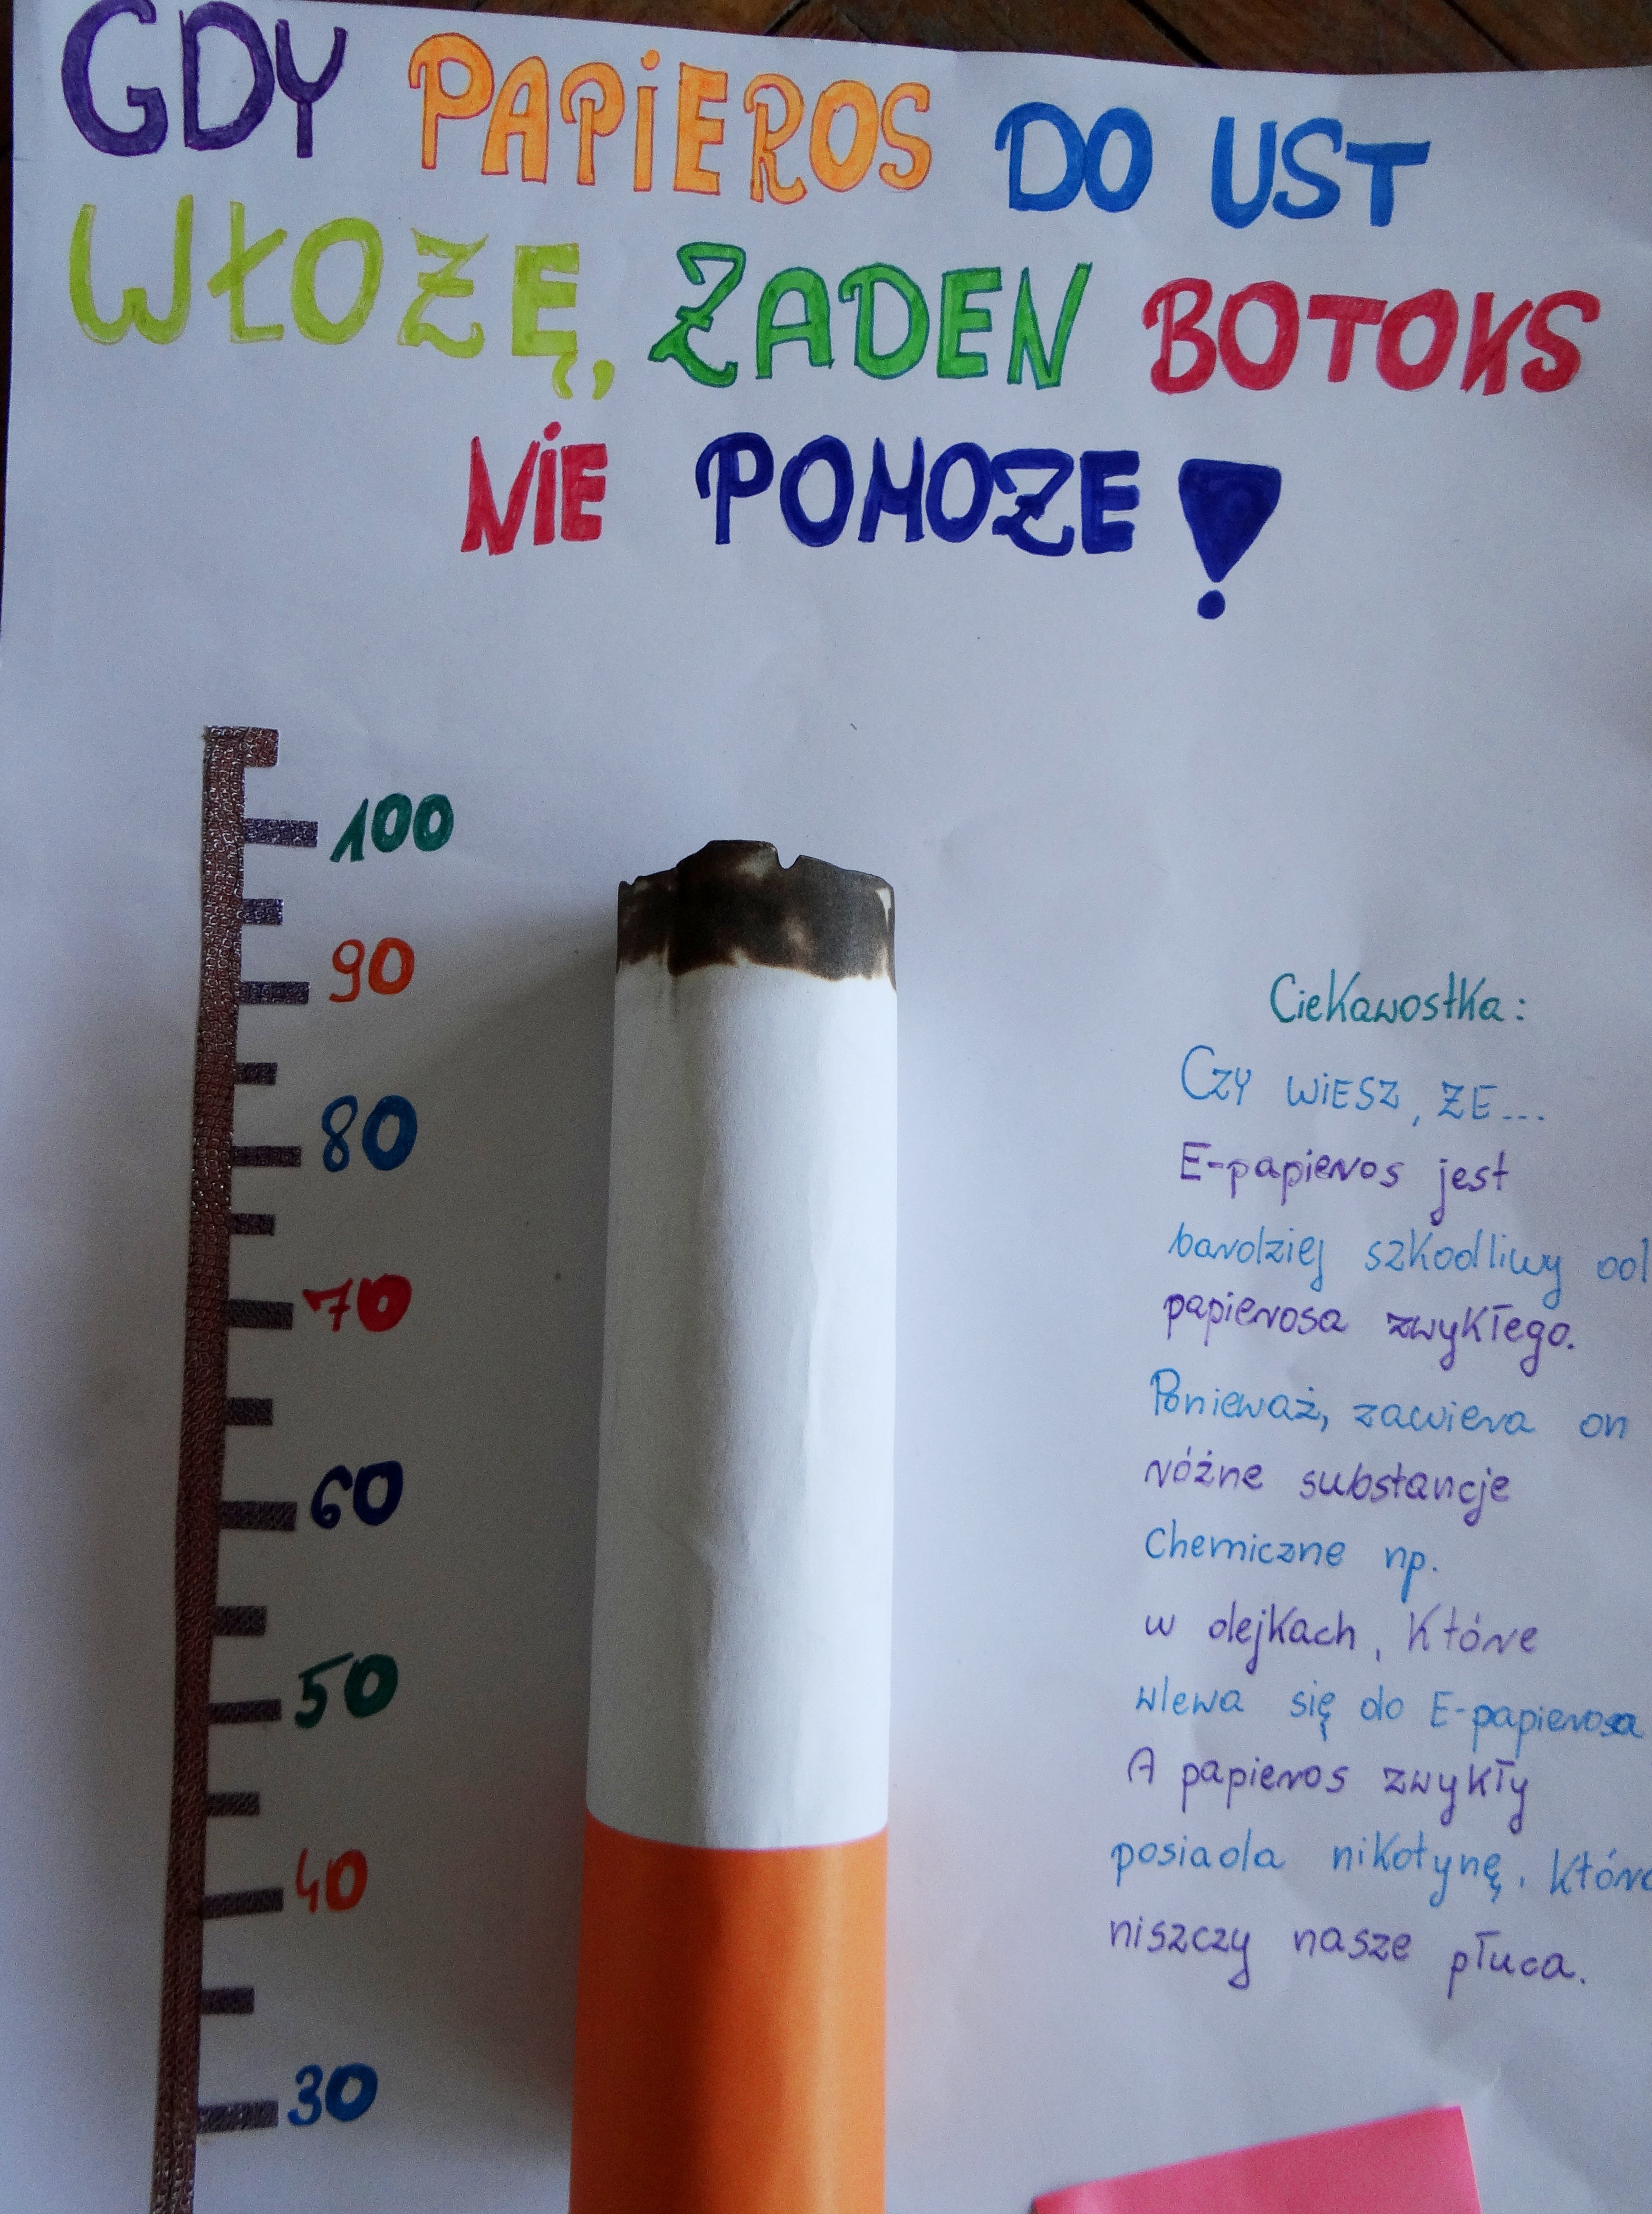 GDY PAPIEROS DO UST
WŁOŻĘ, ŻADEN BOTOKS
NIE POMOŻE!
100
90
80
70
60
50
40
30
Ciekawostka:
Czy WIESZ, ŻE...
E-papieros jest
bardziej szkodliwy od
papierosa zwykłego.
Ponieważ, zawiera on
różne substancje
Chemiczne np.
w olejkach, które
wlewa się do E-papierosa
A papieros zwykły
posiada nikotynę, która
niszczy nasze płuca.